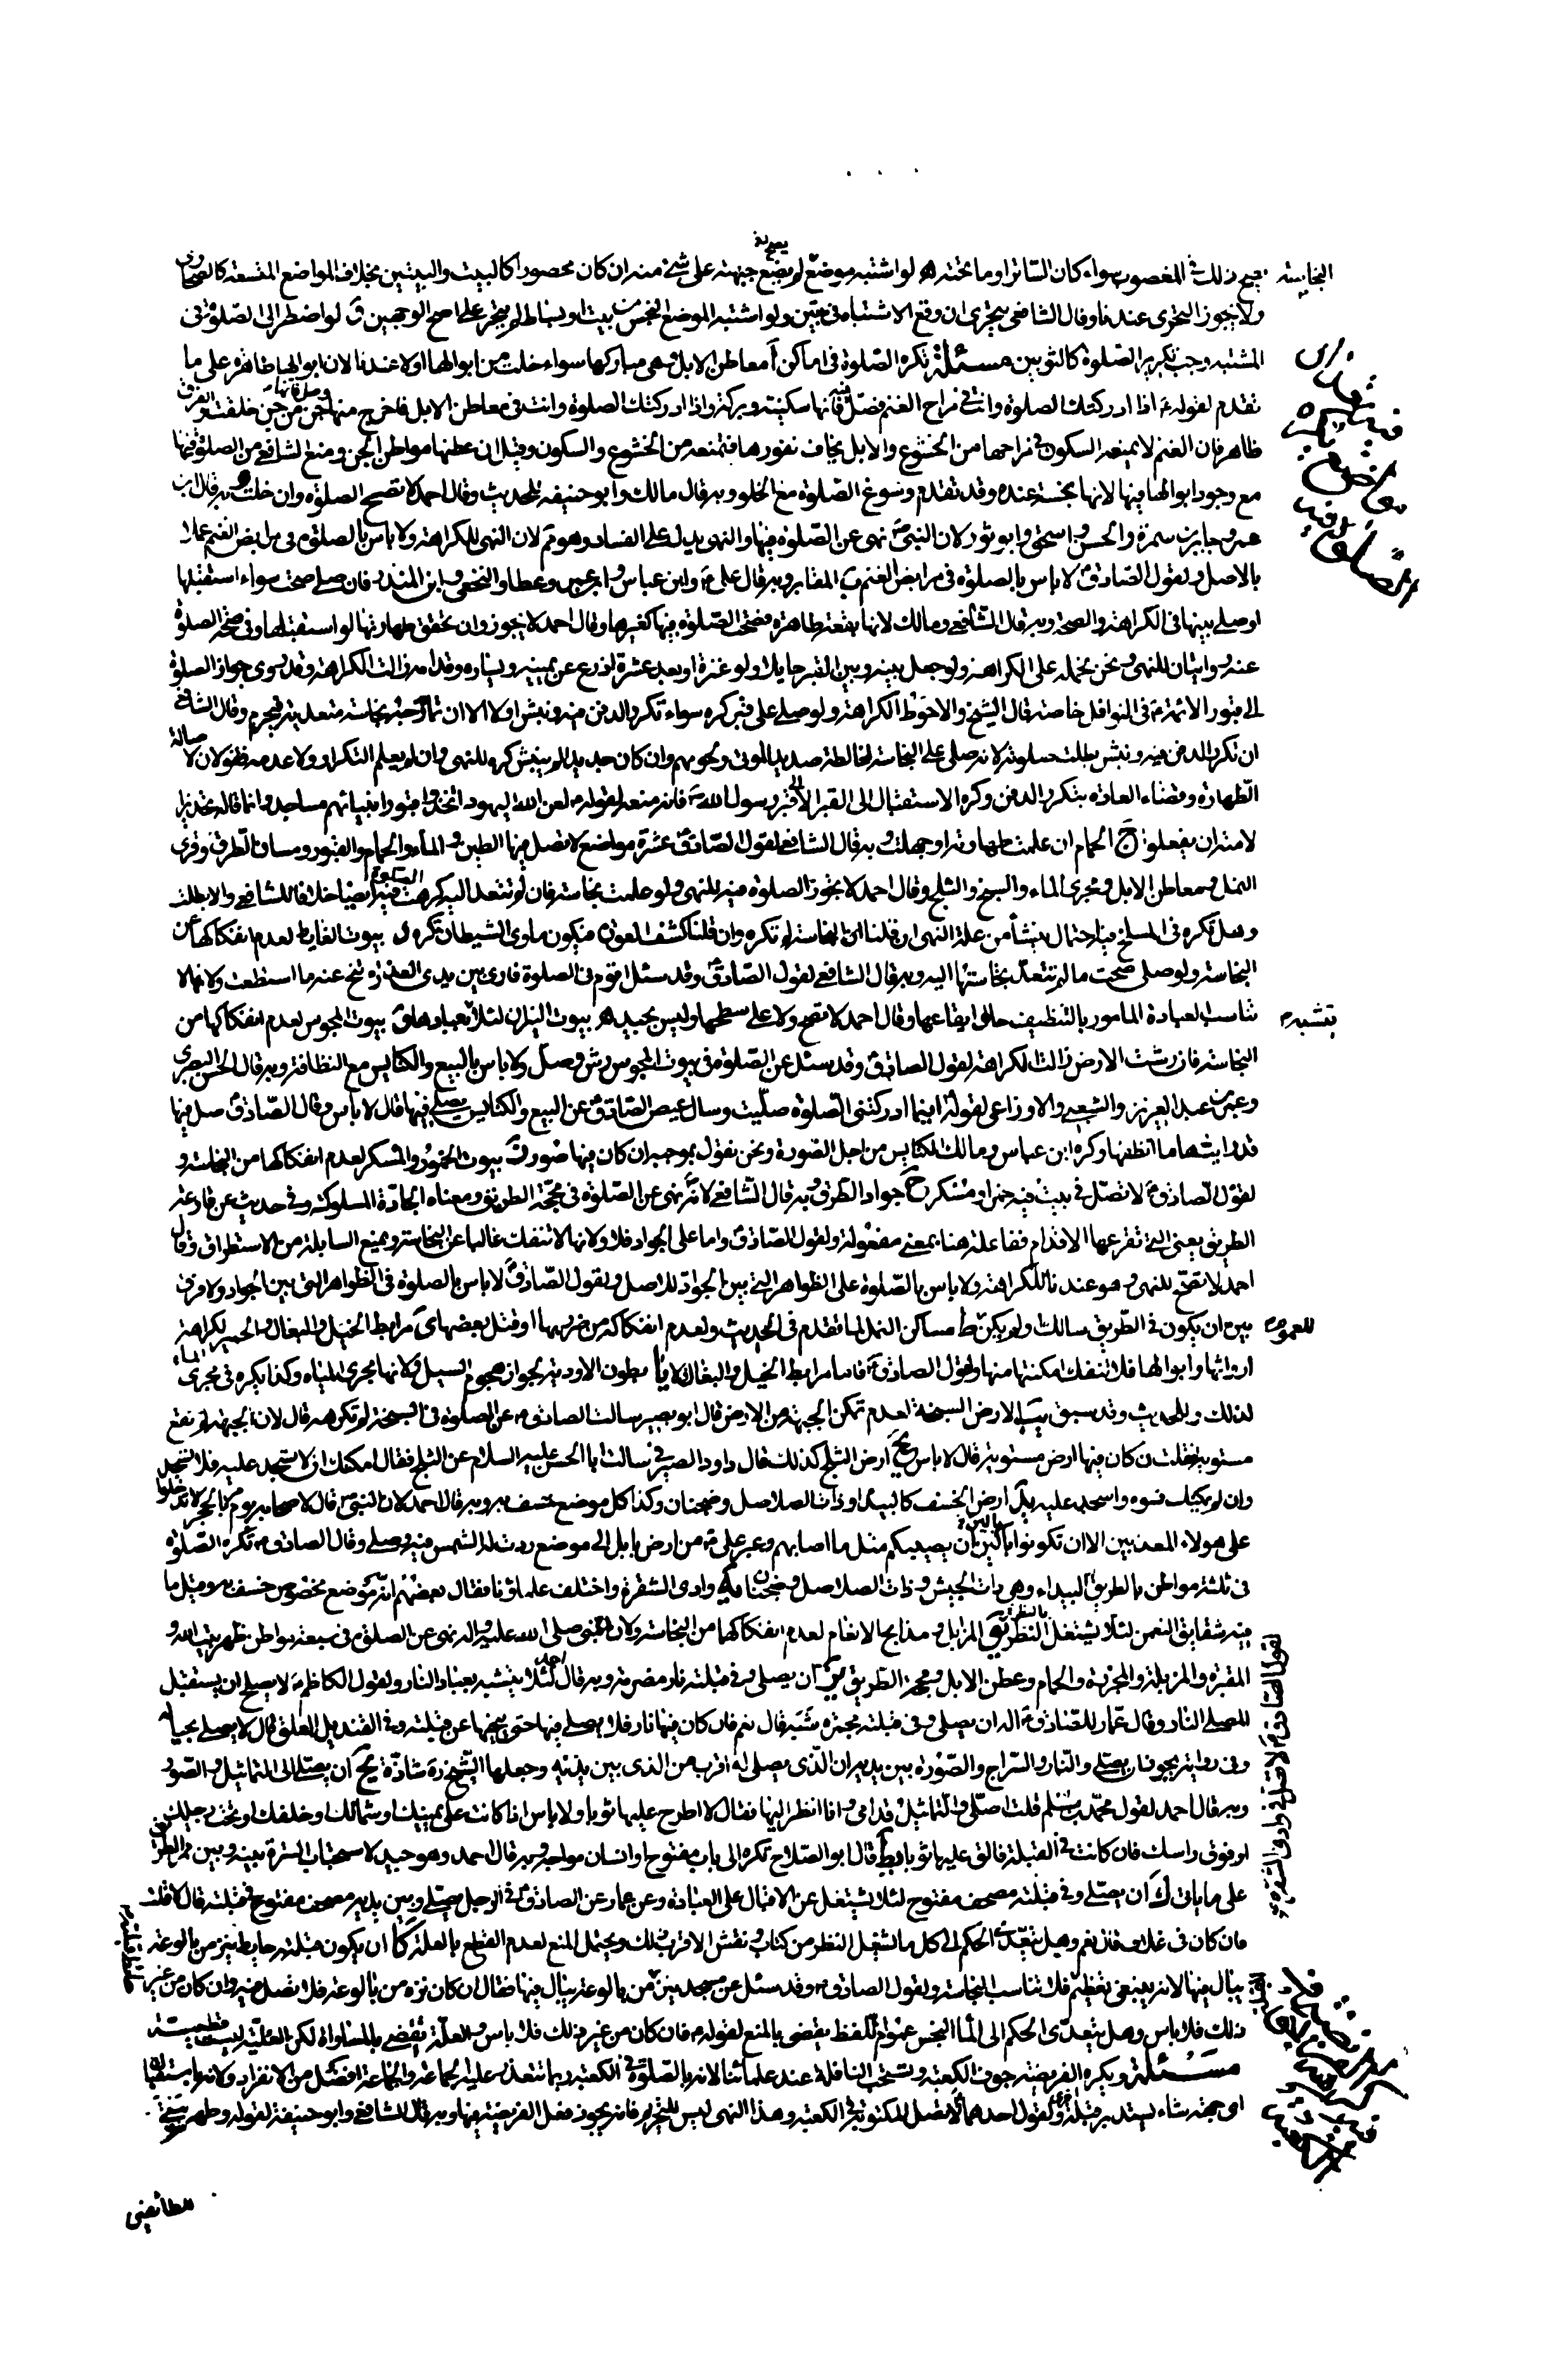 جميع ذلك في المغصوب سواء كان الساتر او ما تحته لو اشتبه موضع لم يضع جبهته على شئ منه ان كان محصورا كالبيت والبيتين بخلاف المواضع المتسعة كالصحارى
ولا يجوز التحرى عندنا وقال الشافعى يتحرى ان وقع الاشتباه فى بيتين ولو اشتبه الموضع النجس من بيت او بساط لم يتحر على اصح الوجهين ولو اضطر الى الصلوة فى
المشتبه وجب تكرير الصلوة كالثوبين مسئلة تكره الصلوة فى اماكن آ معاطن الابل وهى مباركها سواء خلت من ابوالها اولا عندنا لان ابوالها طاهرة على ما
تقدم لقوله اذا ادركتك الصلوة وانت في مراح الغنم فصل فيه فانها سكينة وبركة واذا ادركتك الصلوة وانت فى معاطن الابل فاخرج منها وصل فانها جن من جن خلقت والفرق
ظاهر فان الغنم لا يمنعه السكون فى مراحها من الخشوع والابل يخاف نفورها فتمنعه من الخشوع والسكون وقيل ان عطنها مواطن الجن ومنع الشافعى من الصلوة فيها
مع وجود ابوالها فيها لانها نجسة عنده وقد تقدم وسوغ الصلوة مع الخلو وبه قال مالك وابو حنيفة للحديث وقال احمد لا تصح الصلوة وان خلت وبه قال ابن
عمر وجابر بن سمرة والحسن واسحق وابو ثور لان النبى نهى عن الصلوة فيها والنهى يدل على الفساد وهو تم لان النهى للكراهة ولا باس بالصلوة فى مرابض الغنم عملا
بالاصل ولقول الصادق لا باس بالصلوة فى مرابض الغنم ب المقابر وبه قال على وابن عباس وابن عمر وعطا والنخعى وابن المنذر فان صلى صحت سواء استقبلها
او صلى بينها فى الكراهة والصحة وبه قال الشافعى ومالك لانها بقعة طاهرة فصحت الصلوة فيها كغيرها وقال احمد لا يجوز وان تحقق طهارتها لو استقبلها وفى صحة الصلوة
عنده روايتان للنهى ونحن نحمله على الكراهة ولو جعل بينه وبين القبر حايلا ولو عنزة او بعد عشرة اذرع عن يمينه ويساره وقدامه زالت الكراهة وقد روى جواز الصلوة
الى قبور الائمة فى النوافل خاصة قال الشيخ والاحوط الكراهة ولو صلى على قبر كره سواء تكرر الدفن فيه ونبش اولا الا ان نجاسة متعدية فيحرم وقال الشافعى
ان تكرر الدفن فيه ونبش بطلت صلوته لانه صلى على النجاسة لمخالطة صديد الموتى ولحومهم وان كان جديدا لم ينبش كره للنهى وان لم يعلم التكرار ولا عدمه فقولان لاصالة
الطهارة وقضاء العادة بتكرر الدفن وكره الاستقبال الى القبر الا الى قبر رسول الله فانه منعه لقوله لعن الله اليهود اتخذوا قبور انبيائهم مساجد وانما قاله تحذيرا
لامته ان يفعلوا ج الحمام ان علمت طهارته او جهلت وبه قال الشافعى لقول الصادق عشرة مواضع لا تصلى فيها الطين والماء والحمام والقبور ومسان الطرق وقرى
النمل ومعاطن الابل ومجرى الماء والسبخ والثلج وقال احمد لا تجوز الصلوة فيه للنهى ولو علمت نجاسته فان لم تتعد اليه كرهت الصلوة فيه ايضا خلافا للشافعى والا بطلت
وهل تكره فى المسلخ فيه احتمال ينشأ من علة النهى ان قلنا انه النجاسة لم تكره وان قلنا كشف العورة فيكون ماوى الشيطان تكره د بيوت الغايط لعدم انفكاكها عن
النجاسة ولو صلى صحت ما لم تتعد نجاستها اليه وبه قال الشافعى لقول الصادق وقد سئل اقوم فى الصلوة فارى بين يدى العذرة تنح عنها ما استطعت ولانها لا
تناسب العبادة المامور بالتنظيف حال ايقاعها وقال احمد لا تصح ولا على سطحها وليس بجيد ه بيوت النيران لئلا تشبه بعبادها و بيوت المجوس لعدم انفكاكها من
النجاسة فان رشت الارض زالت الكراهة لقول الصادق وقد سئل عن الصلوة فى بيوت المجوس رش وصل ولا باس بالبيع والكنايس مع النظافة وبه قال الحسن البصرى
وعمر بن عبد العزيز والشعبى والاوزاعى لقوله اينما ادركتنى الصلوة صليت وسال عيص الصادق عن البيع والكنايس يصلى فيها قال لا باس وقال الصادق صل فيها
قد رايتها ما انظفها وكره ابن عباس ومالك الكنايس من اجل الصورة ونحن نقول بموجبه ان كان فيها صورة ز بيوت الخمور والمسكر لعدم انفكاكها من النجاسة و
لقول الصادق لا تصل فى بيت فيه خمر او مسكر ح جواد الطرق وبه قال الشافعى لانه نهى عن الصلوة فى محجة الطريق ومعناه الجادة المسلوكة وفى حديث عن قارعة
الطريق يعنى التى تقرعها الاقدام ففاعلة هنا بمعنى مفعولة ولقول الصادق واما على الجواد فلا ولانها لا تنفك غالبا عن النجاسة ويمنع السابلة من الاستطراق وقال
احمد لا تصح للنهى وهو عندنا للكراهة ولا باس بالصلوة على الظواهر التى بين الجواد للاصل ولقول الصادق لا باس بالصلوة فى الظواهر التى بين الجواد ولا فرق
بين ان يكون فى الطريق سالك او لم يكن ط مساكن النمل لما تقدم فى الحديث ولعدم انفكاكه من ضررها او قتل بعضها ى مرابط الخيل والبغال والحمير لكراهة
ارواثها وابوالها فلا تنفك امكنتها منها ولقول الصادق فاما مرابط الخيل والبغال فلا يا بطون الاودية لجواز هجوم السيل ولانها مجرى المياه وكذا يكره فى مجرى الماء
لذلك وللحديث وقد سبق يب الارض السبخة لعدم تمكن الجبهة من الارض قال ابو بصير سالت الصادق عن الصلوة فى السبخة لم تكرهه قال لان الجبهة لا تقع
مستوية فقلت ان كان فيها ارض مستوية قال لا باس يج ارض الثلج كذلك قال داود الصيرفى سالت ابا الحسن عليه السلام عن الثلج فقال ان امكنك ان لا تسجد عليه فلا تسجد
وان لم يمكنك فسوه واسجد عليه يد ارض الخسف كالبيداء وذات الصلاصل وضجنان وكذا كل موضع خسف به وبه قال احمد لان النبى قال لاصحابه يوم مر بالحجر لا تدخلوا
على هولاء المعذبين الا ان تكونوا باكين ان يصيبكم مثل ما اصابهم وعبر على من ارض بابل الى موضع ردت له الشمس فيه وصلى وقال الصادق تكره الصلوة
فى ثلثة مواطن بالطريق البيداء وهى ذات الجيش وذات الصلاصل وضجنان يه وادى الشقرة واختلف علماؤنا فقال بعضهم انه موضع مخصوص خسف به وقيل ما
فيه شقايق النعمن لئلا يشتغل النظر يو المزابل ومذابح الانعام لعدم انفكاكها من النجاسة ولان النبى صلى الله عليه واله نهى عن الصلوة فى سبعة مواطن ظهر بيت الله و
المقبرة والمزبلة والمجزرة والحمام وعطن الابل ومحجة الطريق يز ان يصلى وفى قبلته نار مضرمة وبه قال احمد لئلا يتشبه بعباد النار ولقول الكاظم لا يصلح ان يستقبل
المصلى النار وقال عمار للصادق اله ان يصلى وفى قبلته مجمرة شبه قال نعم فان كان فيها نار فلا يصلى فيها حتى ينحيها عن قبلته وفى القنديل المعلق قال لا يصلى بحياله
وفى رواية يجوز ان يصلى والنار والسراج والصورة بين يديه ان الذى يصلى له اقرب من الذى بين يديه وجعلها الشيخ ره شاذة يح ان يصلى الى التماثيل والصور
وبه قال احمد لقول محمد بن مسلم قلت اصلى والتماثيل قدامى وانا انظر اليها فقال لا اطرح عليها ثوبا ولا باس اذا كانت على يمينك او شمالك او خلفك او تحت رجليك
او فوق راسك فان كانت فى القبلة فالق عليها ثوبا يط قال ابو الصلاح تكره الى باب مفتوح او انسان مواجه وبه قال احمد وهو جيد لاستحباب السترة بينه وبين ممر الطريق
على ما ياتى ك ان يصلى وفى قبلته مصحف مفتوح لئلا يشتغل عن الاقبال على العبادة وعن عمار عن الصادق فى الرجل يصلى وبين يديه مصحف مفتوح فى قبلته قال لا قلت
فان كان فى غلاف قال نعم وهل يتعدى الحكم الى كل ما يشغل النظر من كتاب ونقش الاقرب ذلك ويحتمل المنع لعدم القطع بالعلة كا ان يكون قبلته حايط ينز من بالوعة
يبال فيها لانه ينبغى تعظيم القبلة فلا تناسب النجاسة ولقول الصادق وقد سئل عن مسجد ينز من بالوعة يبال فيها فقال ان كان نزه من بالوعة فلا تصل فيه وان كان من غير
ذلك فلا باس وهل يتعدى الحكم الى الماء النجس عموم اللفظ يقضى بالمنع لقوله فان كان من غير ذلك فلا باس والعلة تقضى بالمساواة لكن العلية ليست قطعية
مسئلة ويكره الفريضة جوف الكعبة وتستحب النافلة عند علمائنا لانه بالصلوة فى الكعبة ربما تتعذر عليه الجماعة والجماعة افضل من الانفراد ولانه باستقباله
اى جهة شاء يستدبر قبلة اخرى ولقول احدهما لا تصل المكتوبة فى الكعبة وهذا النهى ليس للتحريم فانه يجوز فعل الفريضة فيها وبه قال الشافعى وابو حنيفة لقوله وطهر بيتى
للطائفين